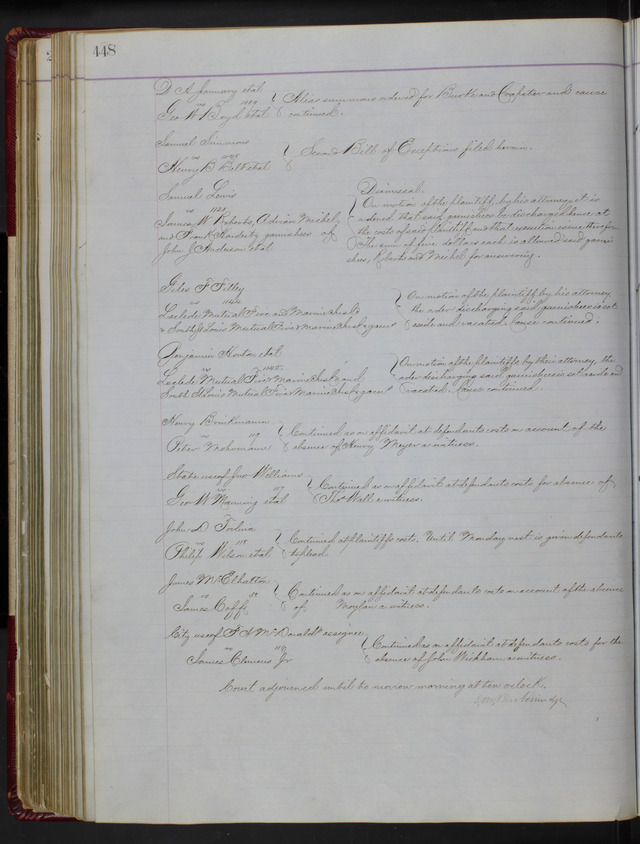 448
D A January etal
vs
Geo W Boyd etal
Alias summons ordered for Burke and Carpenter and cause
continued.
Samuel Simmons
vs
Henry B Belt etal
Second Bill of Exceptions filed herein.
Samuel Lewis
vs
James W Roberts, Adrian Meikel,
and Frank Hardesty garnishees of
John J Anderson etal
Dismissal.
On motion of the plaintiff, by his attorney it is
ordered that said garnishees be discharged hence at
the costs of said plaintiff and that execution issue therefor.
The sum of five dollars each is allowed said garni-
shees, Roberts and Meikel for answering.
Giles F Filley
vs 1144
Laclede Mutual Fire and Marine Ins Co
& South St Louis Mutual Fire & Marine Ins Co garn
On motion of the plaintiff, by his attorney
the order discharging said garnishees is set
aside and vacated. Cause continued.
Benjamin Horton etal
vs 1145
Laclede Mutual Fire & Marine Ins Co and
South St Louis Mutual Fire & Marine Ins Co garn
On motion of the plaintiffs by their attorney, the
order discharging said garnishees is set aside and
vacated. Cause continued.
Henry Brinkmann
vs 119
Peter
Continued as on affidavit at defendants costs on account of the
absence of Henry Meyer a witness.
State use of Jno Williams
vs 117
Geo W Manning etal
Continued as on affidavit at defendants costs for absence of
Thos Wall a witness.
John D
vs 118
Philip Wilson etal
Continued at plaintiffs costs. Until Monday next is given defendants
to plead.
James McElhatton
vs
James Coff
Continued as on affidavit at defendants costs on account of the absence
of Moylan a witness.
City use of F A McDonald assignee
vs
James Clemens Jr
Continued as on affidavit at defendants costs for the
absence of John Wickham a witness.
Court adjourned until to morrow morning at ten oclock.